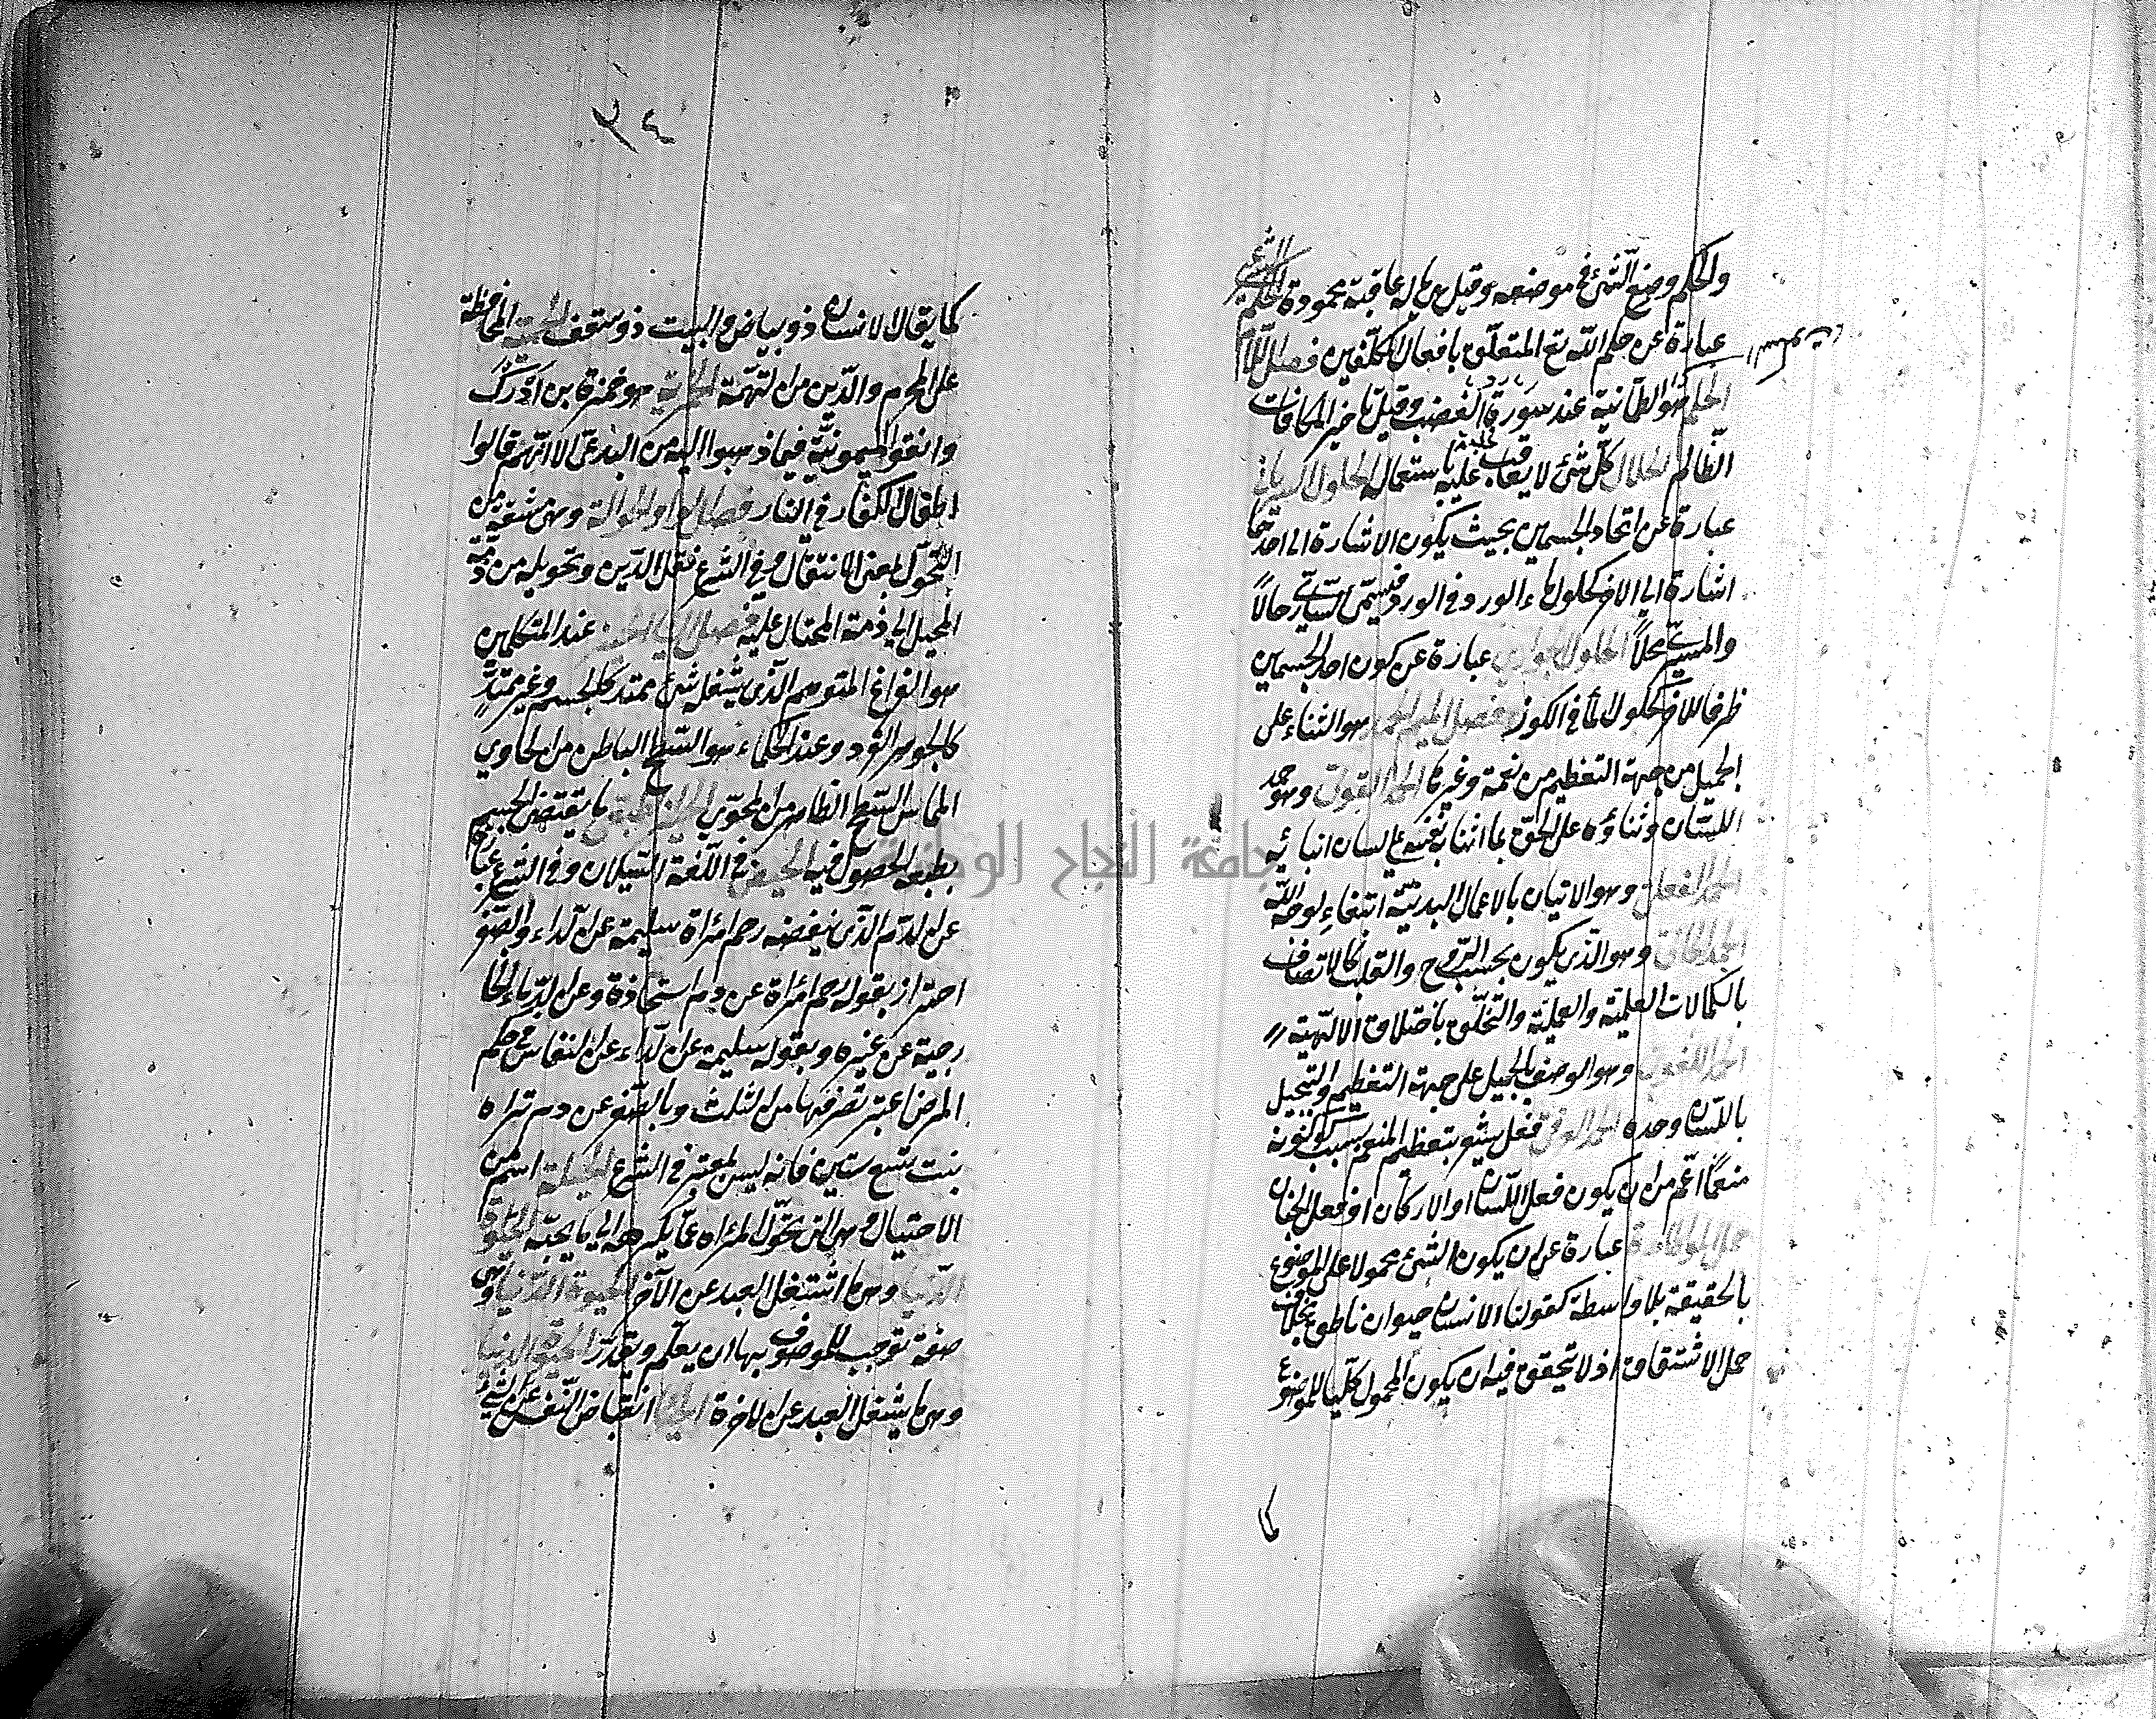 والحكم وضع الشئ في موضعه وقيل ما له عاقبة محمودة الحكم الشرعي
عبارة عن حكم الله تع المتعلق بافعال المكلفين فصل اللام
الحلم هو الطمانينة عند سورة الغضب وقيل تاخير المكافات
الظالم الحلال كل شئ لا يعاقب عليه باستعماله الحلول السرياني
عبارة عن اتحاد الجسمين بحيث يكون الاشارة الى احدهما
اشارة الى الاخر كحلول ماء الورد في الورد فيسمى الساري حالاً
والمسري محلاً الحلول الجواري عبارة عن كون احد الجسمين
ظرفا للاخر كحلول الماء في الكوز فصل الميم الحمد هو الثناء على
الجميل من جهة التعظيم من نعمة وغيرها الحمد القولي وهو حمد
اللسان وثناؤه على الحق بما اثنى به نفسه على لسان انبيائه
الحمد الفعلي وهو الاتيان بالاعمال البدنية ابتغاء لوجه الله
الحمد الحالي وهو الذي يكون بحسب الروح والقلب كالاتصاف
بالكمالات العلمية والعملية والتخلق باخلاق الالهية
الحمد اللغوي وهو الوصف بالجميل على جهة التعظيم والتبجيل
باللسان وحده الحمد العرفي فعل يشعر بتعظيم المنعم بسبب كونه
منعماً اعم من ان يكون فعل اللسان او الاركان او فعل الجنان
حمل المواطاة عبارة عن ان يكون الشئ محمولا على الموضوع
بالحقيقة بلا واسطة كقولنا الانسان حيوان ناطق بخلاف
حمل الاشتقاق اذ لا تحقق فيه ان يكون المحمول كليا للموضوع
كما
٢٤
كما يقال الانسان ذو بياض والبيت ذو سقف الحمية المحافظة
على المحرم والدين من التهمة الحمزية هو حمزة بن ادرك
وافقوا الميمونية فيما ذهبوا اليه من البدع الا انهم قالوا
اطفال الكفار في النار فصل الواو الحوالة وهي مشتقة من
التحول بمعنى الانتقال وفي الشرع نقل الدين وتحويله من ذمة
المحيل الى ذمة المحتال عليه فصل الياء الحيز عند المتكلمين
هو الفراغ المتوهم الذي يشغله شئ ممتد كالجسم وغير ممتد
كالجوهر الفرد وعند الحكماء هو السطح الباطن من الحاوي
المماس للسطح الظاهر من المحوي الحيز الطبيعي ما يقتضي الجسم
بطبعه الحصول فيه الحيض في اللغة السيلان وفي الشرع عبارة
عن الدم الذي ينفضه رحم امراة سليمة عن الداء والصغر
احترز بقوله رحم امراة عن دم استحاذة وعن الدماء الخا
رجية عن غيره وبقوله سليمة عن الداء عن النفاس في حكم
المرض اعتبر تصرفها من الثلث وبالصغر عن دم تراه
بنت تسع سنين فانه ليس بمعتبر في الشرع الحيلة اسم من
الاحتيال وهي التي تحول المراه عما يكرهه الى ما يحبه الحيوة
الدنيا وهي ما اشتغل العبد عن الآخر الحيوة الدنيا وهي
صفة توجب للموصوف بها ان يعلم ويقدر الحيوة الدنيا
وهي ما يشغل العبد عن الاخرة الحياء انقباض النفس عن الشئ
جامعة النجاح الوطنية